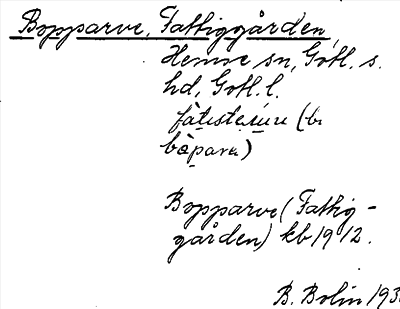 Bopparve, Fattiggården
Hemse sn, Gotl. s.
hd, Gotl. l.
(b
Bopparve (Fattig-
gården) kb 1912.
B. Bolin 193